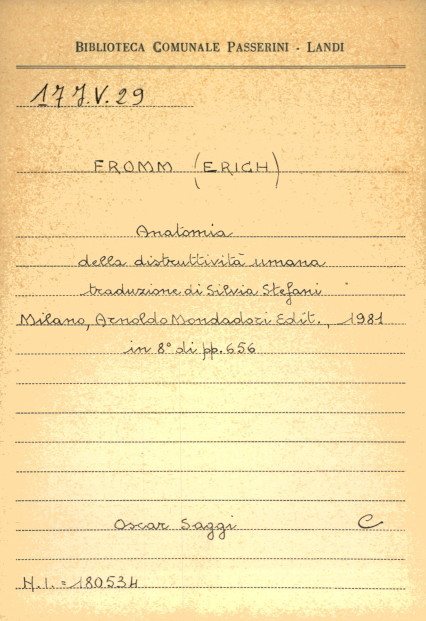 BIBLIOTECA COMUNALE PASSERINI - LANDI
17 J.V.29
FROMM (ERICH)
Anatomia
della distruttività umana
traduzione di Silvia Stefani
Milano, Arnoldo Mondadori Edit., 1981
in 8° di pp. 656
Oscar Saggi C
N.I. = 180534